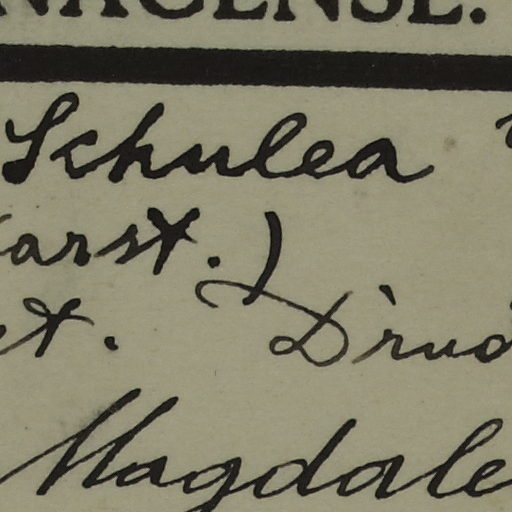 NACENSE.
Schulea
Karst.)
et. Drud
Magdale